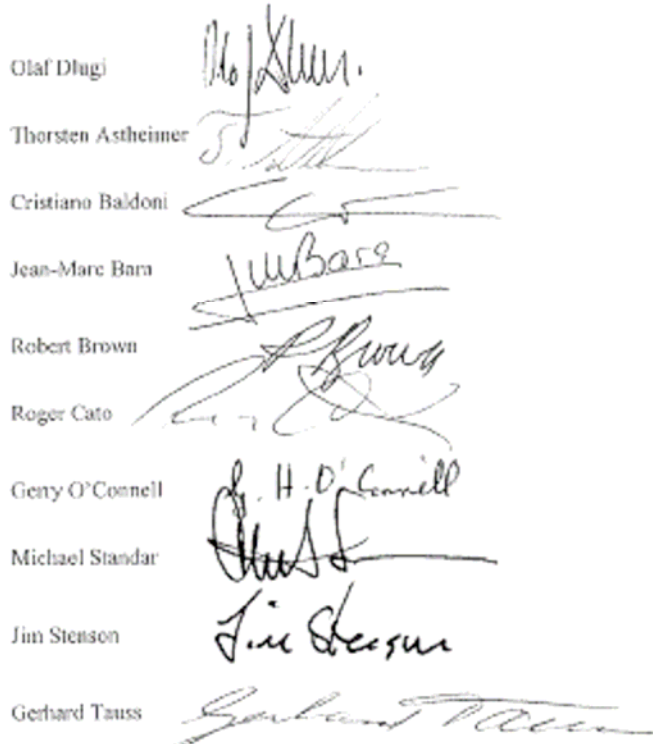 Olaf Dlugi
Thorsten Astheimer
Cristiano Baldoni
Jean-Marc Bara JMBara
Robert Brown R Brown
Roger Cato
Gerry O'Connell G. H. O'Connell
Michael Standar
Jim Stenson Jim Stenson
Gerhard Tauss Gerhard Tauss